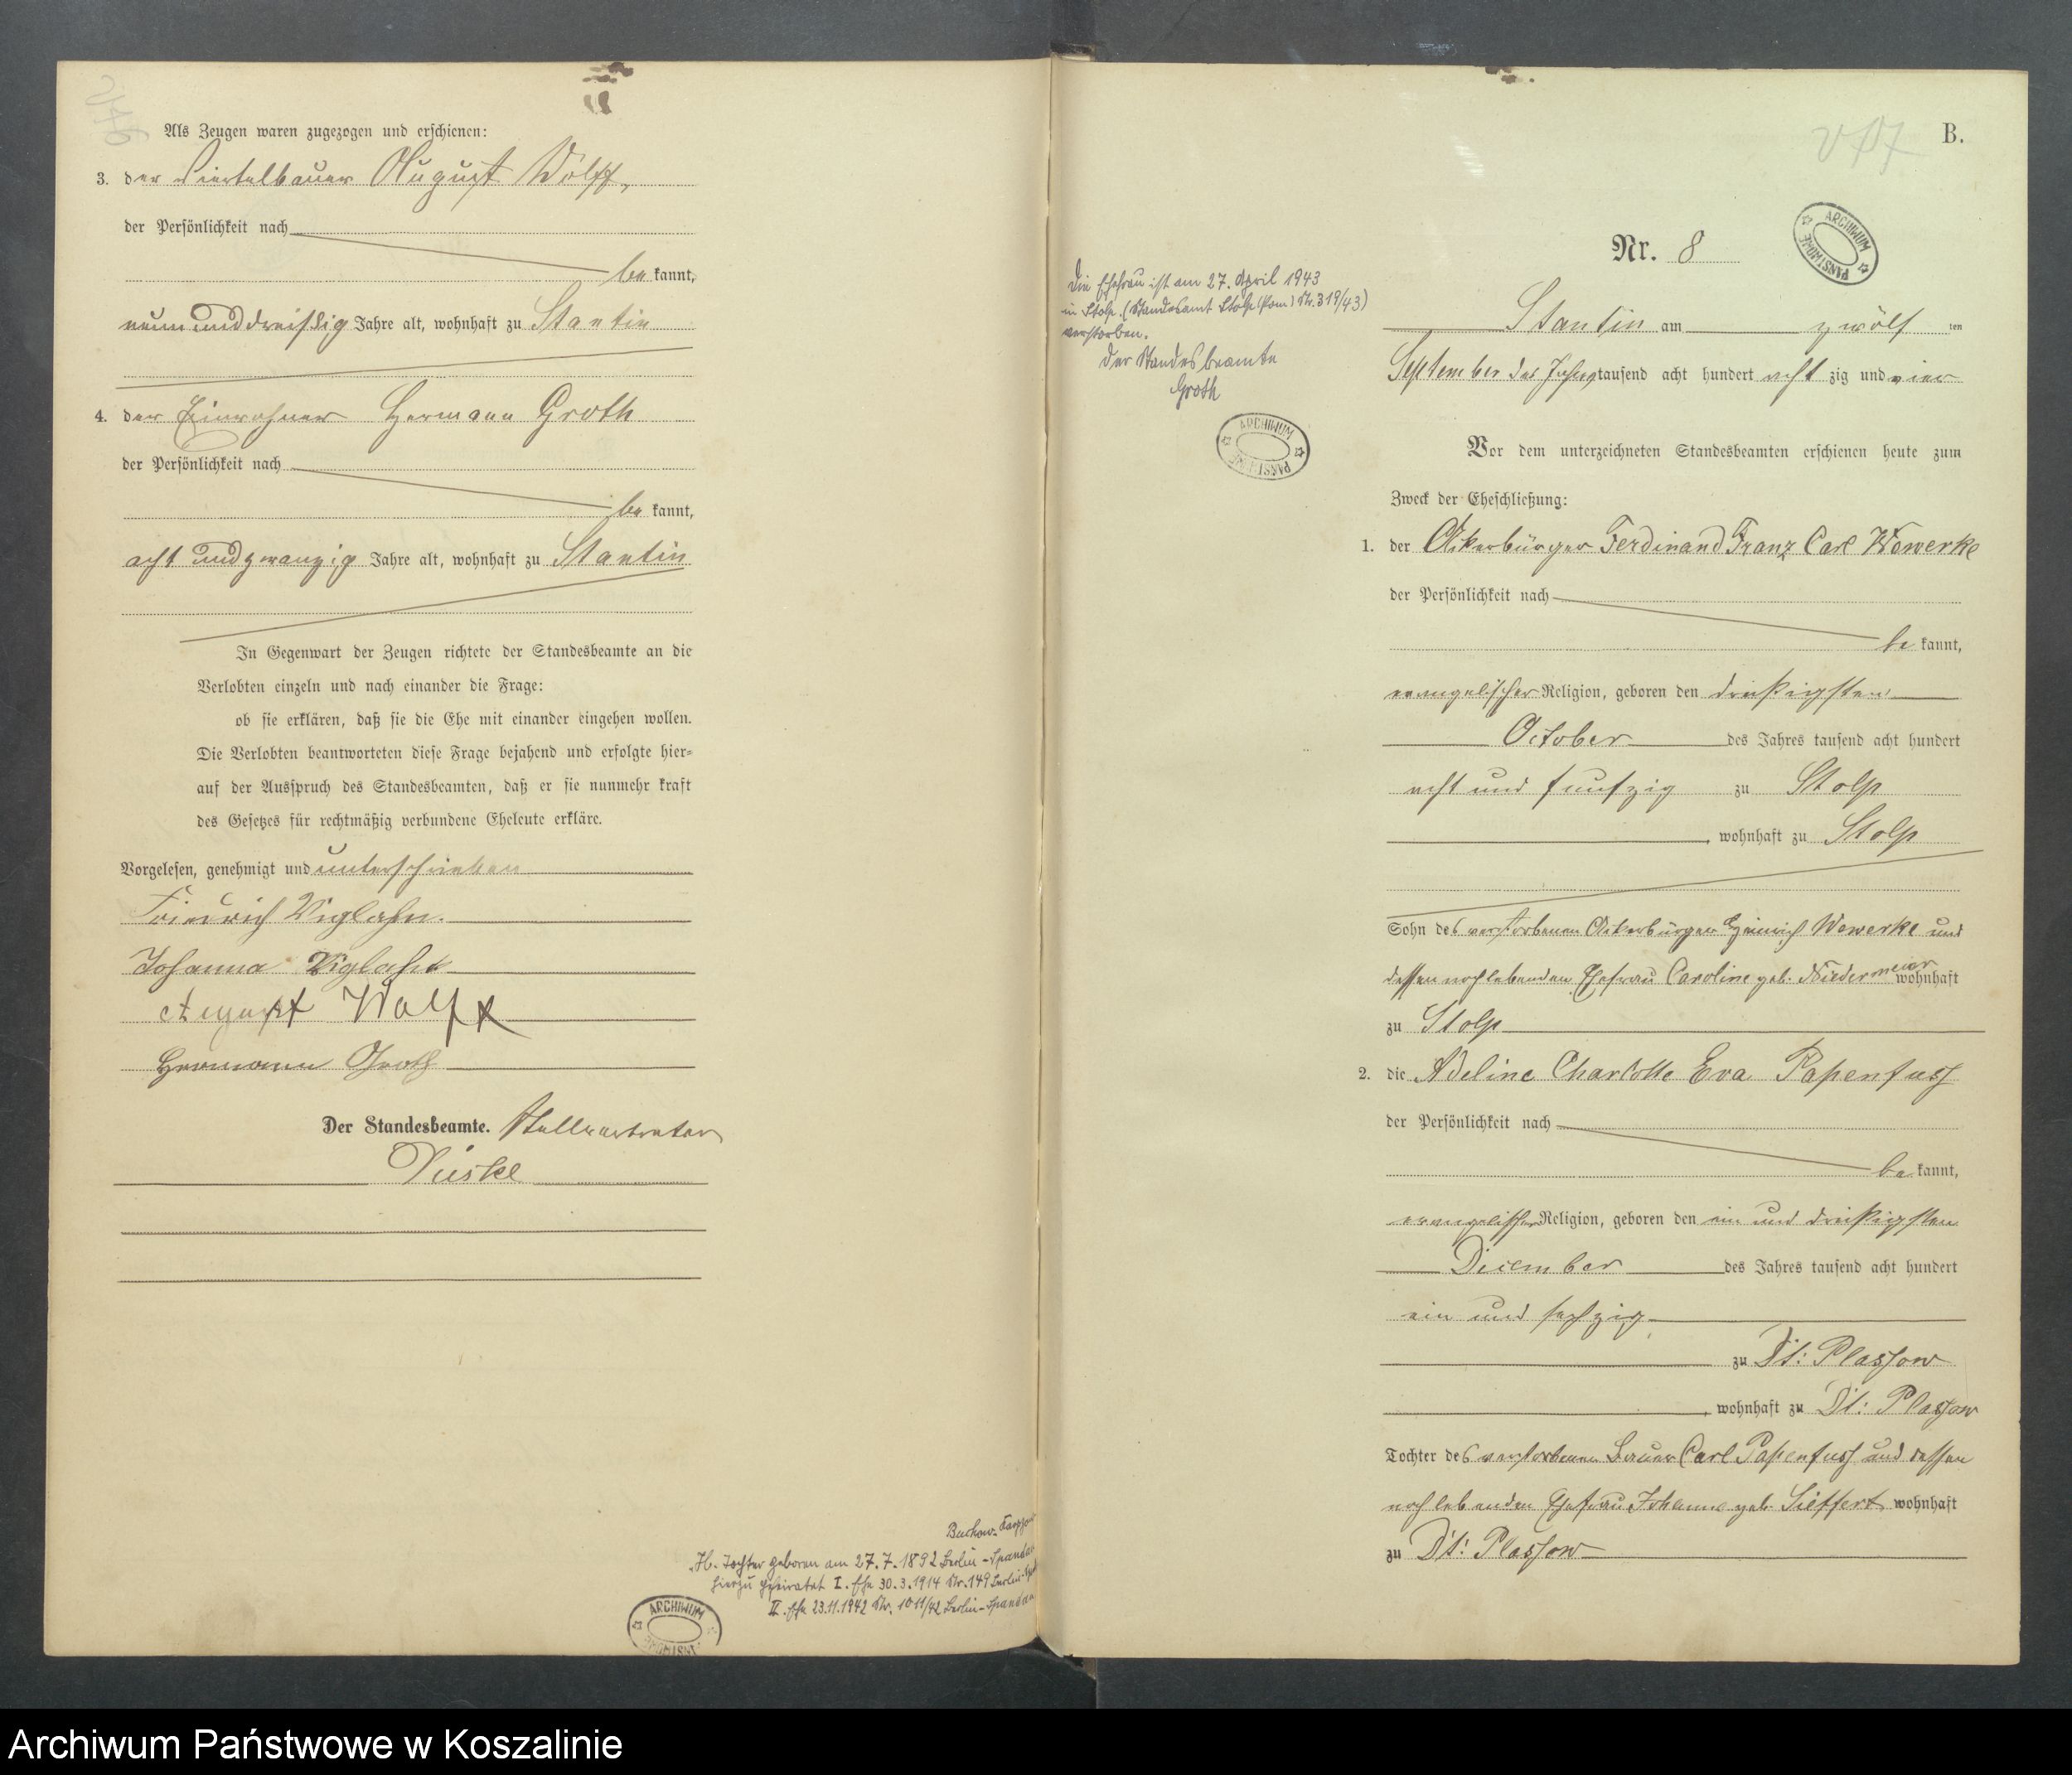 Als Zeugen waren zugezogen und erschienen:
3. der Viertelbauer August Wolff,
der Persönlichkeit nach
be kannt,
neun und dreißig Jahre alt, wohnhaft zu Stantin
4. der Einwohner Hermann Groth
der Persönlichkeit nach
be kannt,
acht und zwanzig Jahre alt, wohnhaft zu Stantin
In Gegenwart der Zeugen richtete der Standesbeamte an die
Verlobten einzeln und nach einander die Frage:
ob sie erklären, daß sie die Ehe mit einander eingehen wollen.
Die Verlobten beantworteten diese Frage bejahend und erfolgte hier-
auf der Ausspruch des Standesbeamten, daß er sie nunmehr kraft
des Gesetzes für rechtmäßig verbundene Eheleute erkläre.
Vorgelesen, genehmigt und unterschrieben
Friedrich Viglahn.
Johanna Viglahn
August Wolff
Hermann Groth
Der Standesbeamte. Stellvertreter
Buckow-
H. Tochter geboren am 27.7.1892 Berlin-Spandau
hierzu geheiratet I. Ehe 30.3.1914 Nr. 149 Berlin-
II. Ehe 23.11.1942 Nr. 1011/42 Berlin-Spandau
ARCHIWUM
B.
ARCHIWUM PAŃSTWOWE
Nr. 8
Die Ehefrau ist am 27. April 1943
in Stolp (Standesamt Stolp (Pom) Nr. 319/43)
verstorben.
Der Standesbeamte
Groth
ARCHIWUM PAŃSTWOWE
Stantin am zwölf ten
September des Jahres tausend acht hundert acht zig und vier
Vor dem unterzeichneten Standesbeamten erschienen heute zum
Zweck der Eheschließung:
1. der Ackerbürger Ferdinand Franz Carl Wewerke
der Persönlichkeit nach
be kannt,
evangelischer Religion, geboren den dreißigsten
October des Jahres tausend acht hundert
acht und funfzig zu Stolp
, wohnhaft zu Stolp
Sohn des verstorbenen Ackerbürger Heinrich Wewerke und
dessen noch lebenden Ehefrau Caroline geb. Niedermeier wohnhaft
zu Stolp
2. die Adeline Charlotte Eva Papenfuss
der Persönlichkeit nach
be kannt,
evangelischer Religion, geboren den ein und dreißigsten
December des Jahres tausend acht hundert
ein und sechzig
zu Dt: Plassow
, wohnhaft zu Dt: Plassow
Tochter des verstorbenen Bauer Carl Papenfuss und dessen
noch lebenden Ehefrau Johanne geb. Sieffert wohnhaft
zu Dt: Plassow
Archiwum Państwowe w Koszalinie